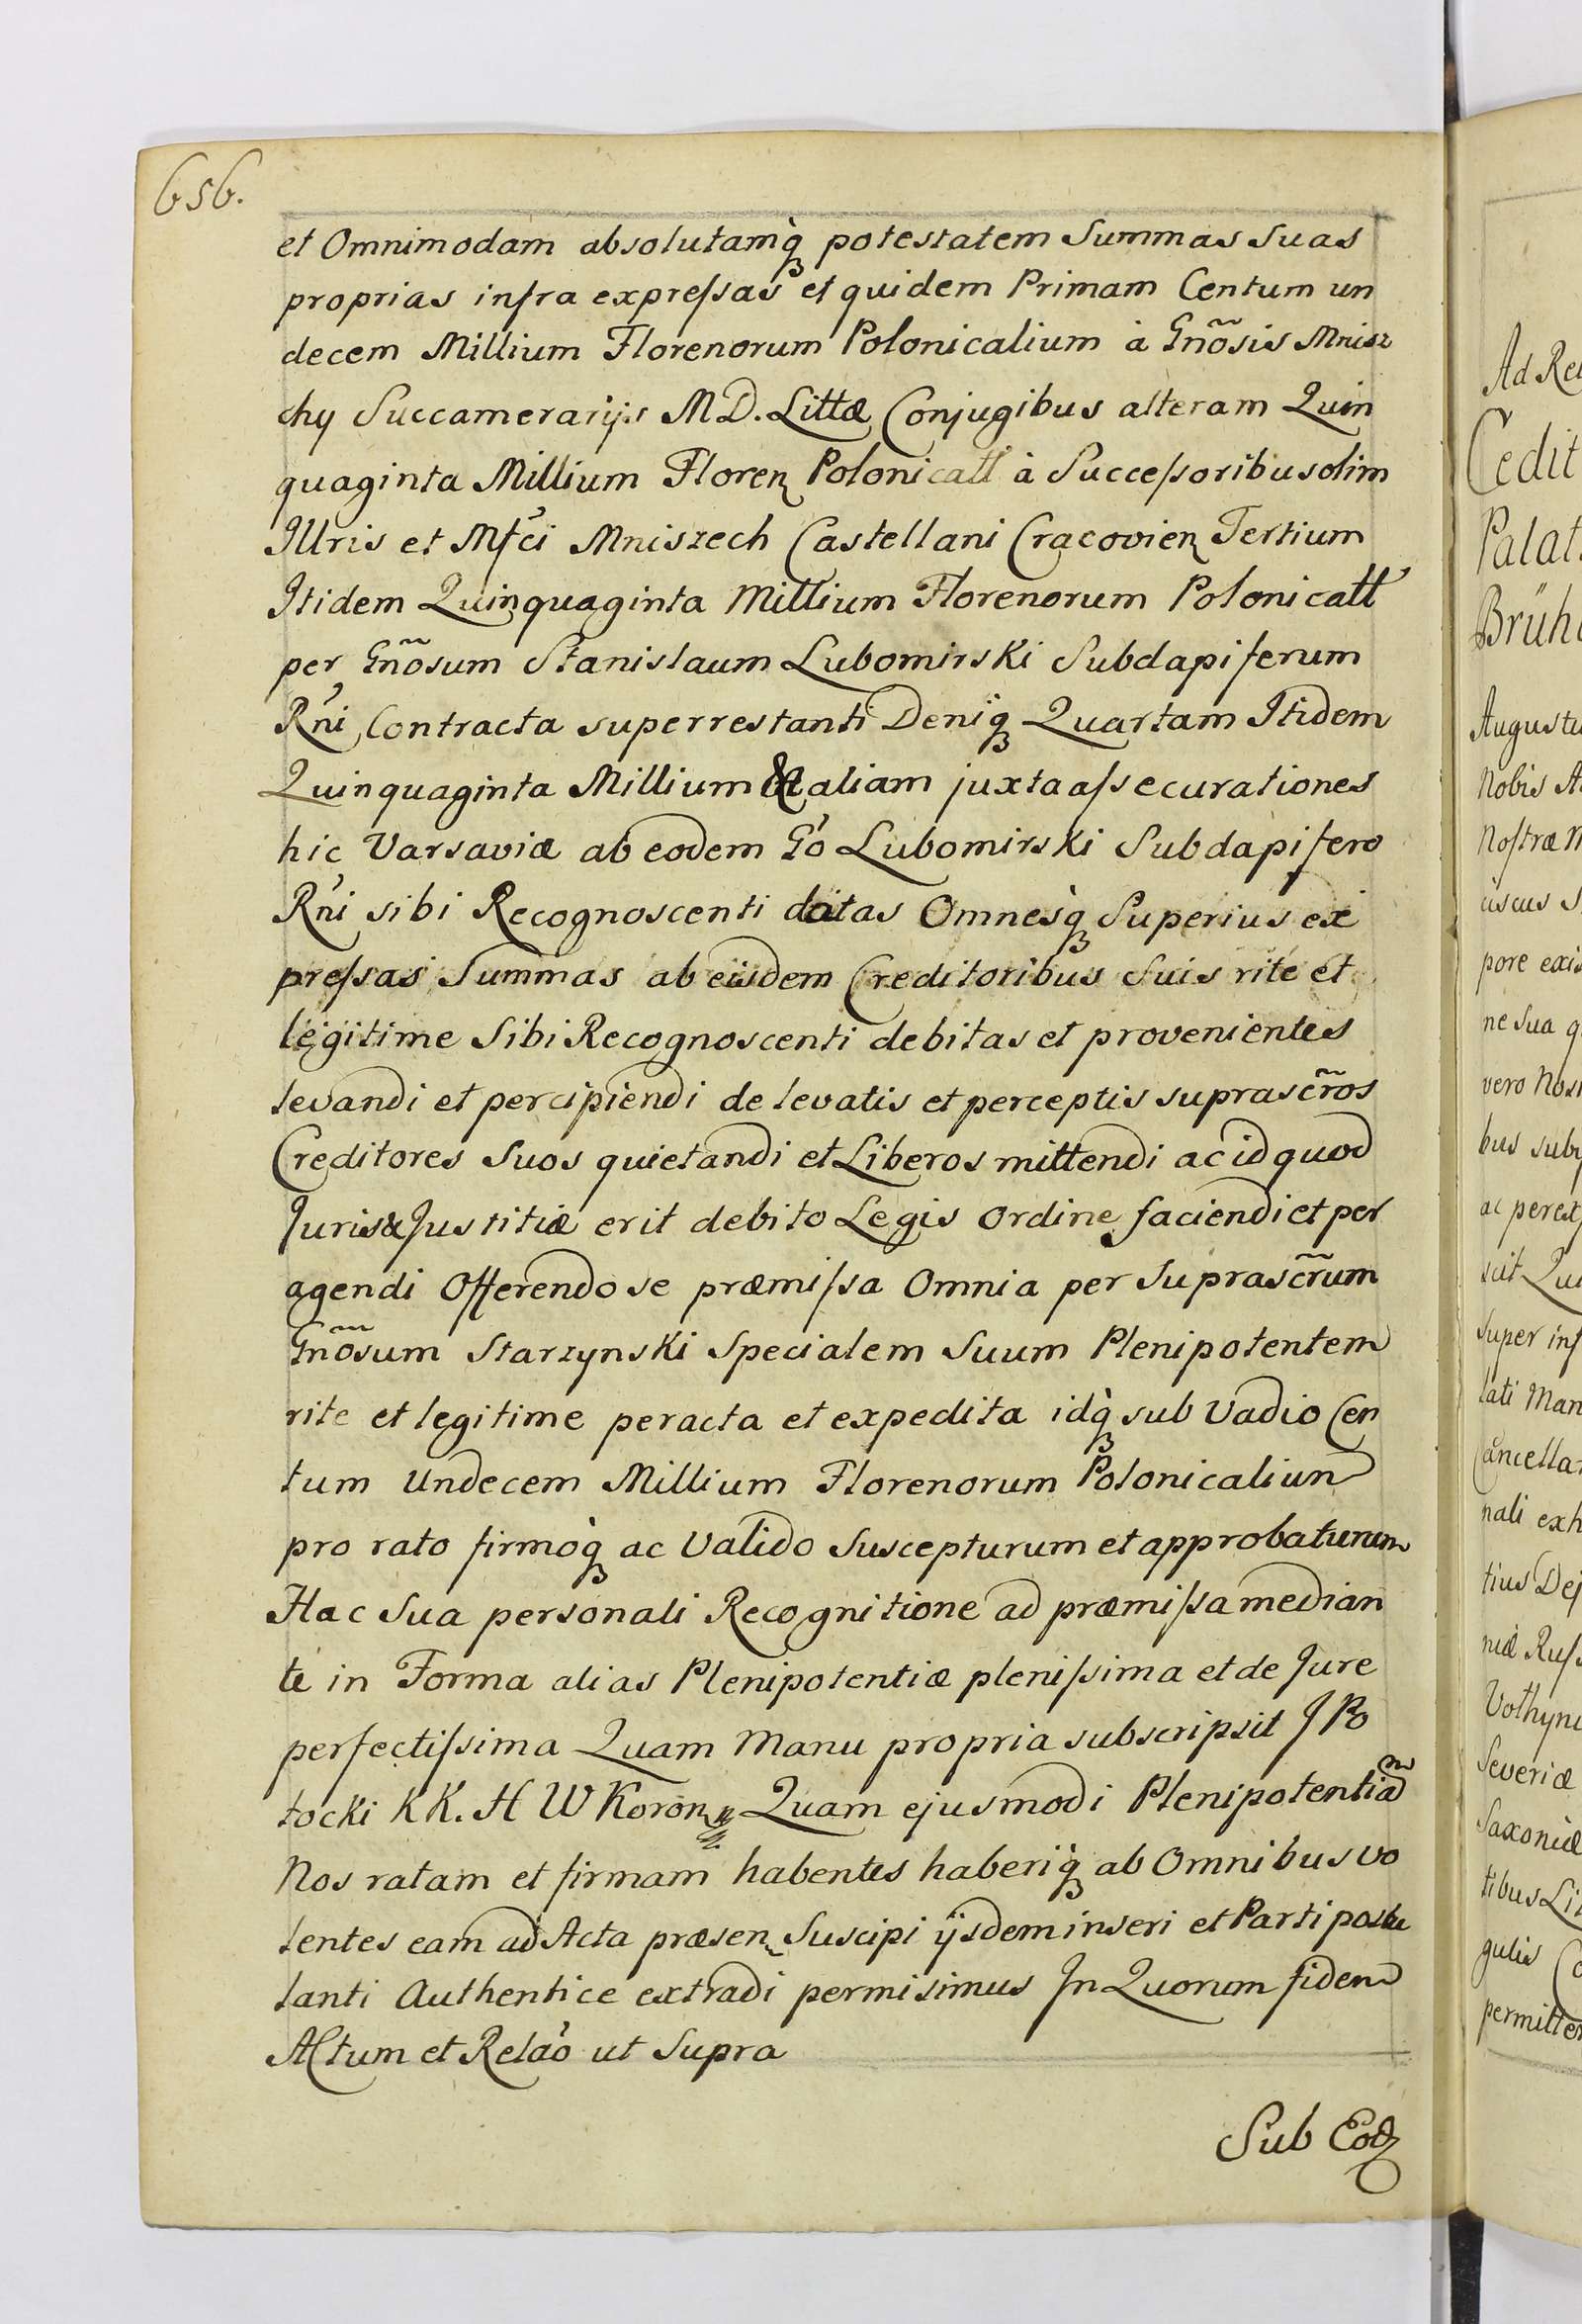 656.
et Omnimodam absolutamq̀ꝫ potestatem Summas Suas
proprias infra expreſsas et quidem Primam Centum un
decem Millium Florenorum Polonicalium à Gnõsis Mnisz
chy Succamerarijs M D. Littæ Conjugibus alteram Quin
quaginta Millium Floren Polonicall à Succeſsoribus olim
Illris et Mfci Mniszech Castellani Cracovien Tertium
Itidem Quinquaginta Millium Florenorum Polonicall
per Gnõsum Stanislaum Lubomirski Subdapiferum
Rni Contracta superrestanti Deniqꝫ Quartam Itidem
Quinquaginta Millium & aliam juxta aſsecurationes
hic Varsaviæ ab eodem Gó Lubomirski Subdapifero
Rni sibi Recognoscenti datas Omnesq̀ꝫ Superius ex
preſsas Summas ab eisdem Creditoribus Suis rite et
legitime Sibi Recognoscenti debitas et provenientes
levandi et percipiendi de levatis et perceptis suprascr̃os
Creditores Suos quietandi et Liberos mittendi ac id quod
Juris & Justitiæ erit debito Legis Ordine faciendi et per
agendi Offerendo se præmiſsa Omnia per Suprascr̃um
Gnõsum Starzynski Specialem Suum Plenipotentem
rite et legitime peracta et expedita idq̀ꝫ sub Vadio Cen
tum Undecem Millium Florenorum Polonicalium
pro rato firmoq̀ꝫ ac Valido Suscepturum et approbaturum
Hac Sua personali Recognitione ad præmiſsa median
te in Forma alias Plenipotentiæ pleniſsima et de Jure
perfectiſsima Quam Manu propria subscripsit J Po
tocki K K. H W Koron Quam ejusmodi Plenipotentiã
Nos ratam et firmam habentes haberiq̀ꝫ ab Omnibus vo
lentes eam ad Acta præsen Suscipi ijsdem inseri et Parti postu
lanti Authentice extradi permisimus In Quorum fidem
Actum et Relaó ut Supra
Sub Eodꝫ
Ad Rel
Cedit
Palat.
Brüh
Augustu
Nobis A
Noſtræ M
pore exis
ne Sua q
vero Nos
bus sub
ac per ex
Super inf
lati Man
Cancellar
nali exh
niæ Ruſ
Volhyni
Severiæ
Saxoniæ
tibus Li
gulis Co
permitte